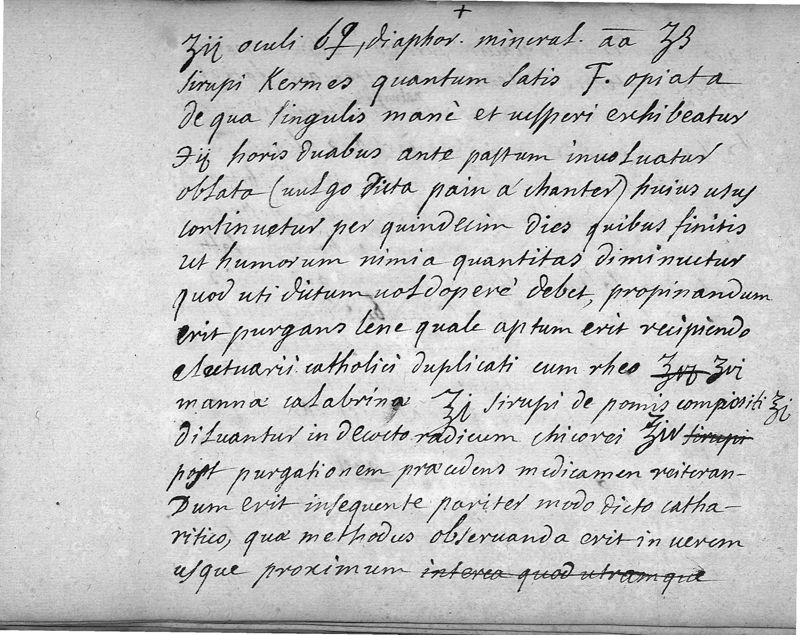 +
ʒij oculi 69, diaphor. mineral. āā ʒß
sirupi Kermes quantum satis F. opiata
de qua singulis manè et vesperi exhibeatur
℈ij horis duabus ante pastum involvatur
oblata (vulgo dicta pain a chanter) huius usus
continuetur per quindecim dies quibus finitis
ut humorum nimia quantitas diminuetur
quod uti dictum debet, propinandum
erit purgans lene quale aptum erit recipiendo
electuarii catholici duplicati cum rheo ʒvj
manna calabrina ℥j sirupi de pomis compositi ℥j
diluantur in decocto radicum chicorei ℥iv sirupi
post purgationem præcedens medicamen reiteran-
dum erit insequente pariter modo dicto catha-
ritico, quæ methodus observanda erit in verem
usque proximum interea quod utramque